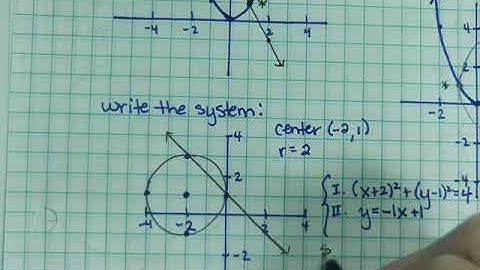 -4 -2 2 4
4
2
-2
-4
write the system:
center (-2,1)
r=2
4
2
-4 -2 2 4
-2
I. (x+2)²+(y-1)²=4
II. y=-1x+1